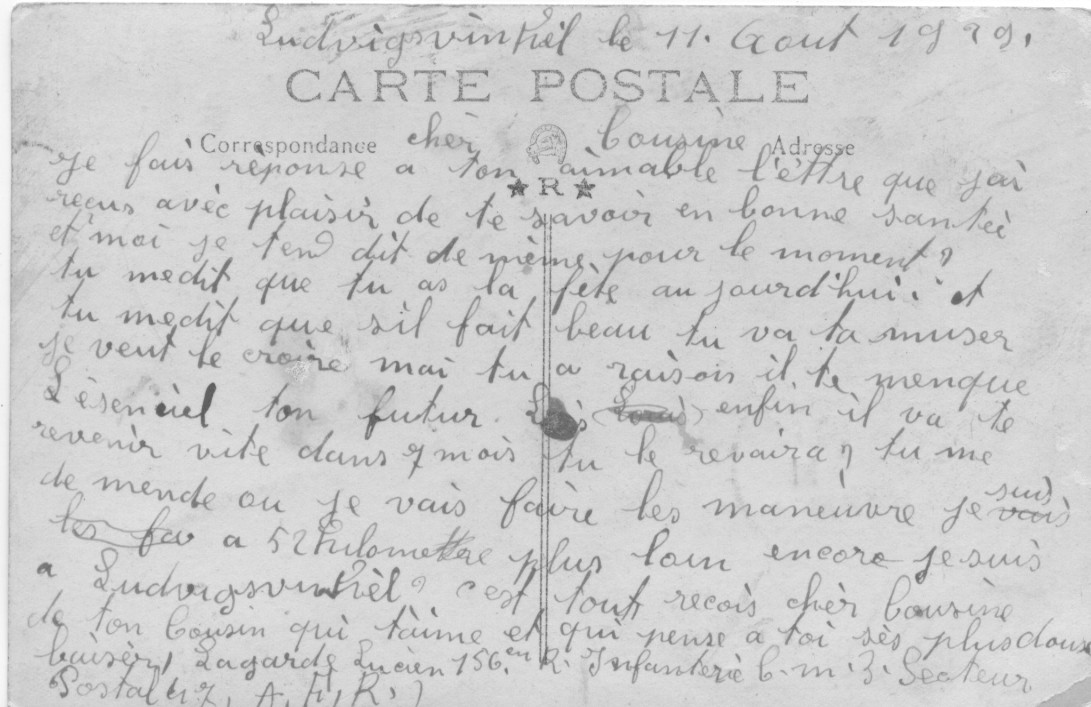 Ludvigsvinkel le 11. Aout 1929.
CARTE POSTALE
Correspondance Adresse
chèr Cousine
Je fais réponse a ton aimable l'éttre que jai
reçus avèc plaisir de te savoir en bonne santeè
et moi je tend dit de mème pour le moment,
tu medit que tu as la fète au jourd'hui. et
tu medit que sil fait beau tu va ta muser
je veut le croire mai tu a raisois il te menque
L'ésenciel ton futur. enfin il va te
revenir vite dans 7 mois tu le revaira, tu me
de mende ou je vais faire les maneuvre je suis
a 52 kilomettre plus loin encore je suis
a Ludvigsvinkèl, c'est tout recois chèr Cousine
de ton Cousin qui t'aime et qui pense a toi sès plus doux
baisèr, Lagarde Lucien 156.en R. Infanteriè C. m. 3. Secteur
Postal 47, A. F. R. ,
★ R ★